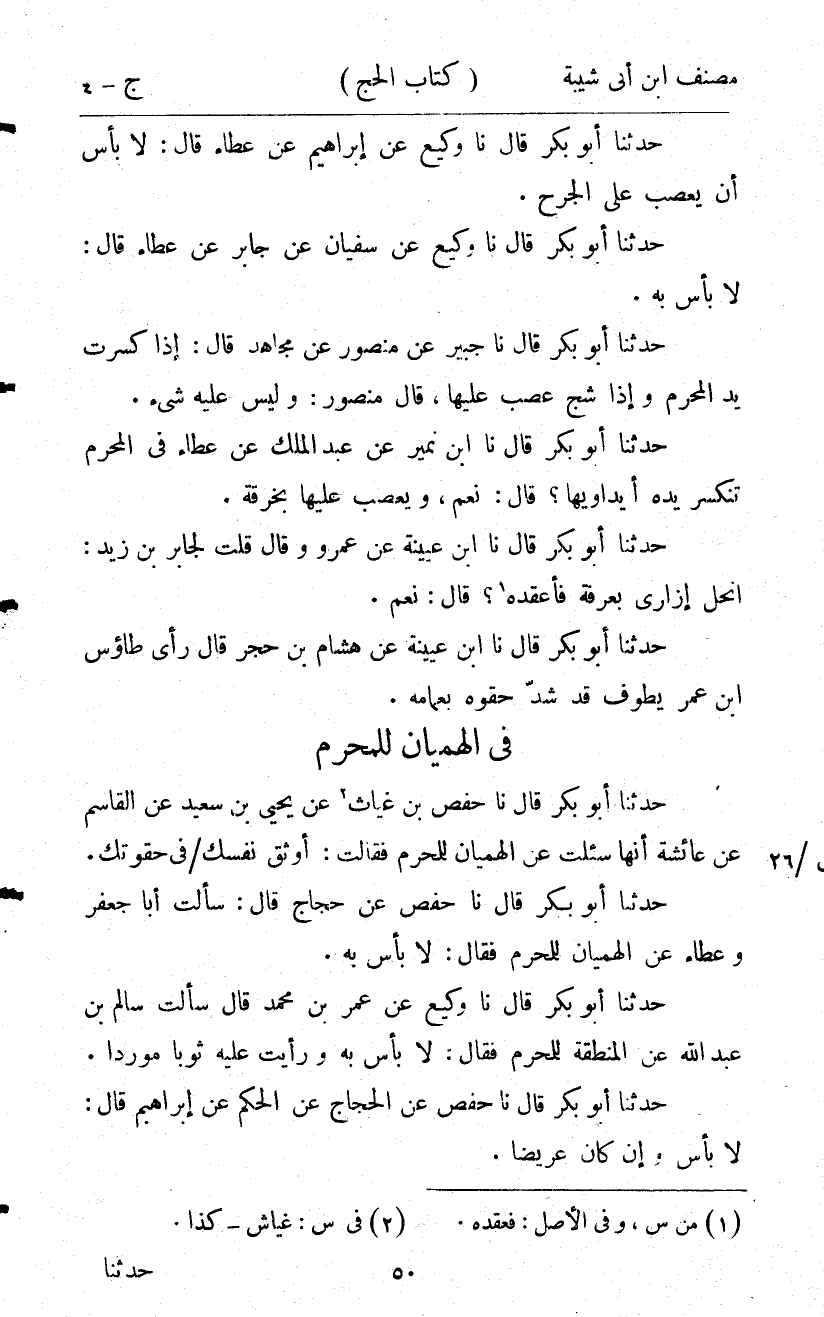 مصنف ابن أبى شيبة ( كتاب الحج ) ج - ٤
حدثنا أبو بكر قال نا وكيع عن إبراهيم عن عطاء قال : لا بأس
أن يعصب على الجرح .
حدثنا أبو بكر قال نا وكيع عن سفيان عن جابر عن عطاء قال :
لا بأس به .
حدثنا أبو بكر قال نا جبير عن منصور عن مجاهد قال : إذا كسرت
يد المحرم و إذا شج عصب عليها ، قال منصور : و ليس عليه شىء .
حدثنا أبو بكر قال نا ابن نمير عن عبد الملك عن عطاء فى المحرم
تنكسر يده أ يداويها ؟ قال : نعم ، و يعصب عليها بخرقة .
حدثنا أبو بكر قال نا ابن عيينة عن عمرو و قال قلت لجابر بن زيد :
انحل إزارى بعرفة فأعقده١ ؟ قال : نعم .
حدثنا أبو بكر قال نا ابن عيينة عن هشام بن حجر قال رأى طاؤس
ابن عمر يطوف قد شدّ حقوه بعمامه .
فى الهميان للمحرم
حدثنا أبو بكر قال نا حفص بن غياث٢ عن يحيى بن سعيد عن القاسم
عن عائشة أنها سئلت عن الهميان للمحرم فقالت : أوثق نفسك/فى حقوتك . /٢٦
حدثنا أبو بكر قال نا حفص عن حجاج قال : سألت أبا جعفر
و عطاء عن الهميان للمحرم فقال : لا بأس به .
حدثنا أبو بكر قال نا وكيع عن عمر بن محمد قال سألت سالم بن
عبد الله عن المنطقة للمحرم فقال : لا بأس به و رأيت عليه ثوبا موردا .
حدثنا أبو بكر قال نا حفص عن الحجاج عن الحكم عن إبراهيم قال :
لا بأس و إن كان عريضا .
(١) من س ، و فى الأصل : فعقده . (٢) فى س : غياش - كذا .
٥٠ حدثنا